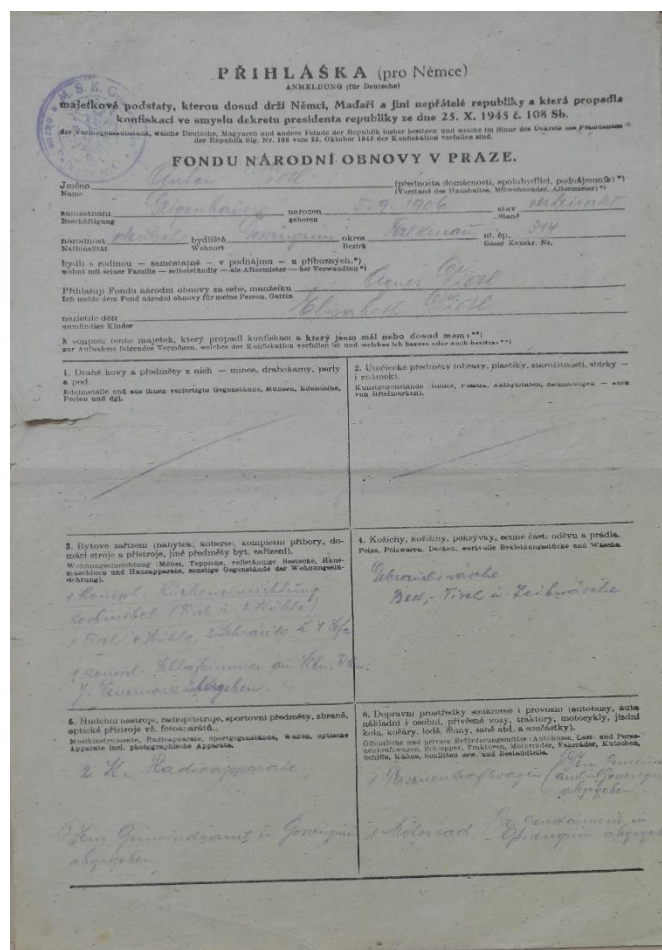 PŘIHLÁŠKA (pro Němce)
ANMELDUNG (für Deutsche)
majetkové podstaty, kterou dosud drží Němci, Maďaři a jiní nepřátelé republiky a která propadla
konfiskaci ve smyslu dekretu presidenta republiky ze dne 25. X. 1945 č. 108 Sb.
der Vermögenssubstanz, welche Deutsche, Magyaren und andere Feinde der Republik bisher besitzen und welche im Sinne des Dekrets des Präsidenten
der Republik Slg. Nr. 108 vom 25. Oktober 1945 der Konfiskation verfallen sind.
FONDU NÁRODNÍ OBNOVY V PRAZE.
Jméno Anton (přednosta domácnosti, spolubydlící, podnájemník) *)
Name (Vorstand des Haushaltes, Mitwohnender, Aftermieter) *)
zaměstnání narozen 5. 9. 1906 stav verheiratet
Beschäftigung geboren Stand
národnost deutsch bydliště okres Falkenau ul. čp. 314
Nationalität Wohnort Bezirk Gasse Konskr. Nr.
bydlí s rodinou — samostatně — v podnájmu — u příbuzných.*)
wohnt mit seiner Familie — selbstständig — als Aftermieter — bei Verwandten *)
Přihlašuji Fondu národní obnovy za sebe, manželku Agnes
Ich melde dem Fond národní obnovy für meine Person, Gattin
nezletilé děti Elisabeth
unmündige Kinder
k soupisu tento majetek, který propadl konfiskaci a který jsem měl nebo dosud mám: **)
zur Aufnahme folgendes Vermögen, welches der Konfiskation verfallen ist und welches ich besass oder noch besitze: **)
1. Drahé kovy a předměty z nich — mince, drahokamy, perly
a pod.
Edelmetalle und aus ihnen verfertigte Gegenstände, Münzen, Edelsteine,
Perlen und dgl.
2. Umělecké předměty (obrazy, plastiky, starožitnosti, sbírky —
i známek).
Kunstgegenstände (Bilder, Plastik, Antiquitäten, Sammlungen — auch
von Briefmarken).
3. Bytové zařízení (nábytek, koberce, kompletní příbory, do-
mácí stroje a přístroje, jiné předměty byt. zařízení).
Wohnungseinrichtung (Möbel, Teppiche, vollständige Bestecke, Haus-
maschinen und Hausapparate, sonstige Gegenstände der Wohnungsein-
richtung).
1 kompl. Kücheneinrichtung
Korbmöbel 1 Tisch u. 2 Stühle
1 Tisch 4 Stühle, 2 Schränke u. 1 Sofa
1 kompl. Schlafzimmer an
übergeben.
4. Kožichy, kožišiny, pokrývky, cenné části oděvu a prádla.
Pelze, Pelzwaren, Decken, wertvolle Bekleidungsstücke und Wäsche.
Gebrauchswäsche
Bett,- Tisch u. Leibwäsche
5. Hudební nástroje, radiopřístroje, sportovní předměty, zbraně,
optické přístroje vč. fotoaparátů.
Musikinstrumente, Radioapparate, Sportgegenstände, Waffen, optische
Apparate incl. photographische Apparate.
2 St. Radioapparate
Gemeindeamt in
abgegeben
6. Dopravní prostředky soukromé i provozní (autobusy, auta
nákladní i osobní, přívěsné vozy, traktory, motocykly, jízdní
kola, kočáry, lodě, čluny, saně atd. a součástky).
Öffentliche und private Beförderungsmittel (Autobusse, Last- und Perso-
nenkraftwagen, Schlepper, Traktoren, Motorräder, Fahrräder, Kutschen,
Schiffe, Kähne, Schlitten usw. und Bestandteile).
1 Personenkraftwagen
abgegeben
1 Motorrad